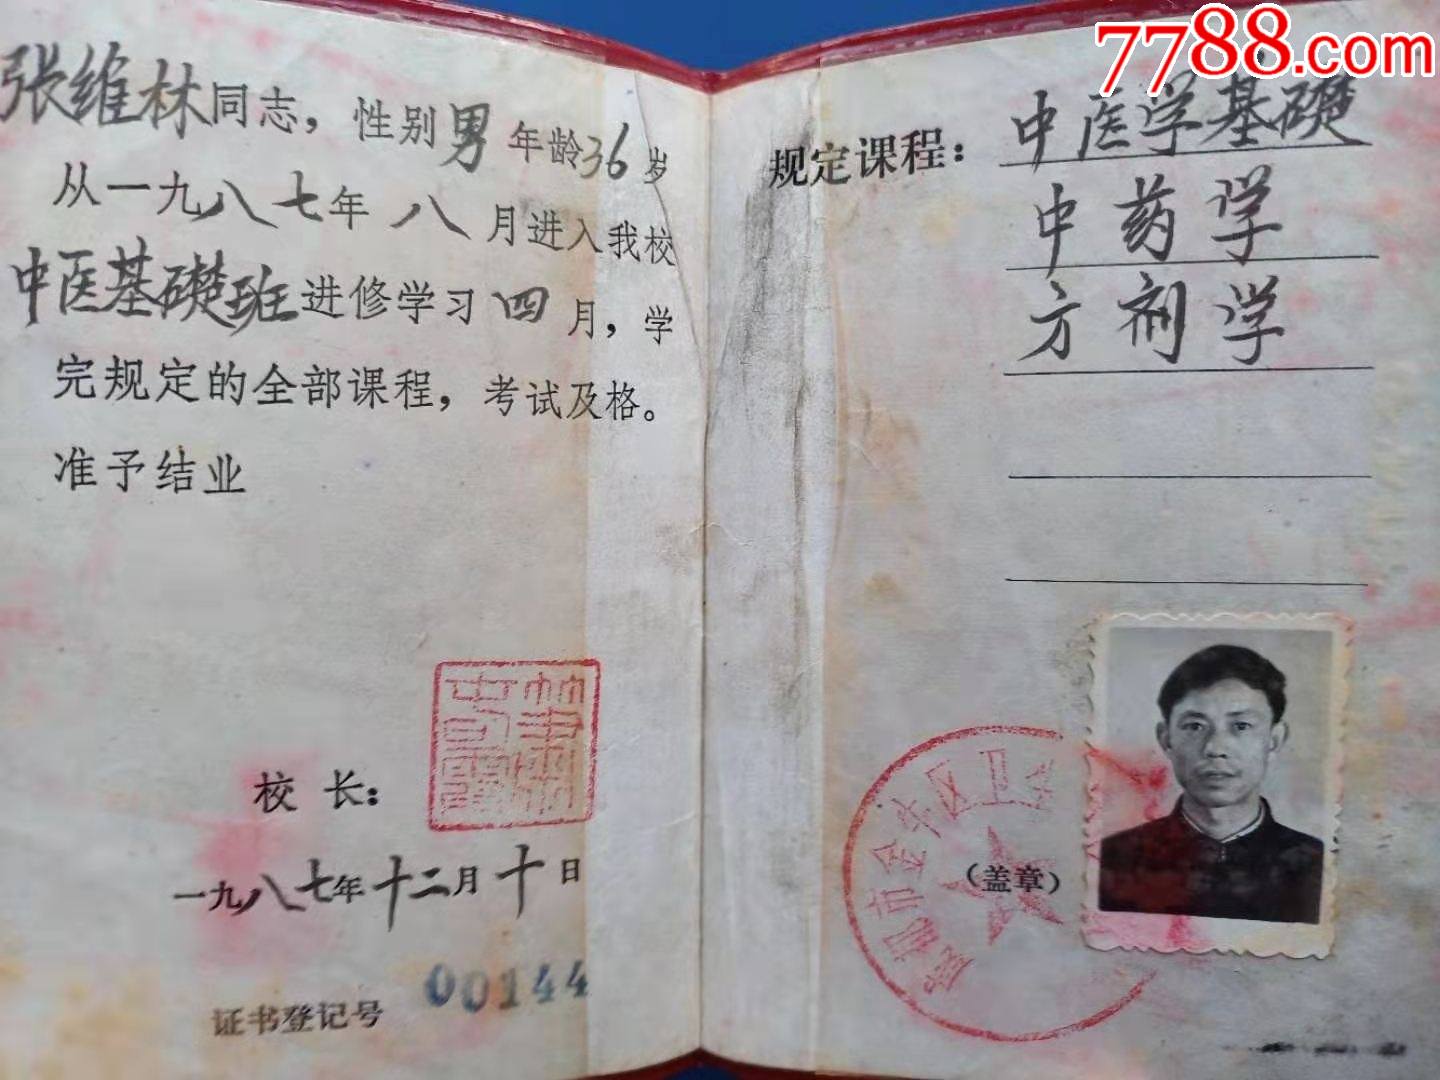 张维林同志，性别男年龄36岁
从一九八七年八月进入我校
中医基礎班进修学习四月，学
完规定的全部课程，考试及格。
准予结业
校长：
一九八七年十二月十日
证书登记号 00144
7788.com
规定课程：中医学基礎
中药学
方剂学
（盖章）
成都市金牛区卫